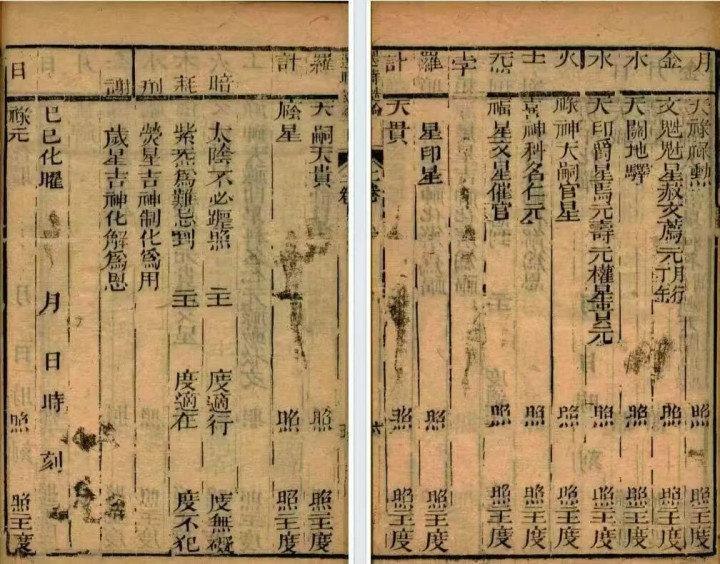 月 天祿祿勲 照 照主度
金 文魁魁星藏文薦元 照 照主度
天關地驛 照 照主度
天印爵星馬元壽元權星 照 照主度
火 祿神天嗣官星 照 照主度
土 喜神科名仁元 照 照主度
炁 福星文星催官 照 照主度
孛
羅 星印星 照 照主度
計 天貫 照 照主度
羅 天嗣天貴 照 照主度
計 陰星 照 照主度
暗 太陰不必躔照 主 度適行 度無礙
耗 紫炁為難忌到 主 度適在 度不犯
刑 熒星吉神制化為用
歲星吉神化解為恩
巳巳化曜 月 日 時 刻
日 祿元 照 照主度